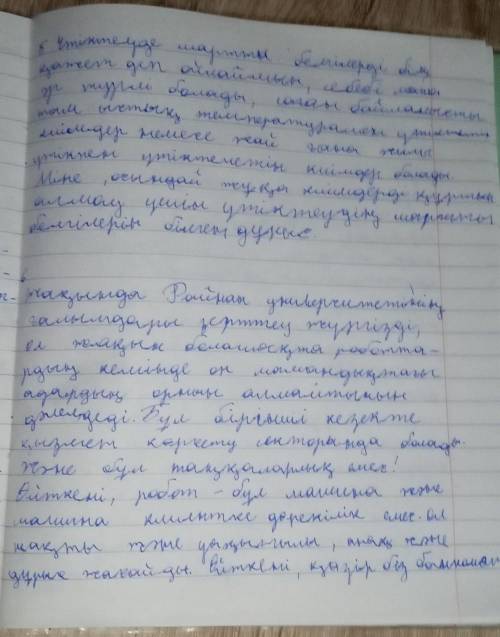 5 Үтіктеуде шартты белгілерді білу
қажет деп ойлаймын, себебі мата
әр түрлі болады, соған байланысты
тым ыстық температурамен үтіктелетін
киімдер немесе жай ғана жылы
үтікпен үтіктелетін киімдер болады.
Міне, осындай жұқа киімдерді құртып
алмау үшін үтіктеудің шартты
белгілерін білген дұрыс.
6
Жақында Райнан университетінің
ғалымдары зерттеу жүргізді,
ол жақын болашақта роботта-
рдың кемінде он мамандықтағы
адардың орнын алмайтынын
дәлелдеді. Бұл бірінші кезекте
қызмет көрсету секторанда болады.
Және бұл таңқаларлық емес!
Өйткені, робот - бұл машина және
машина клиентке дөрекілік емес. ол
нақты және ұқыпты, анық және
дұрыс жасайды. Өйткені, қазір біз